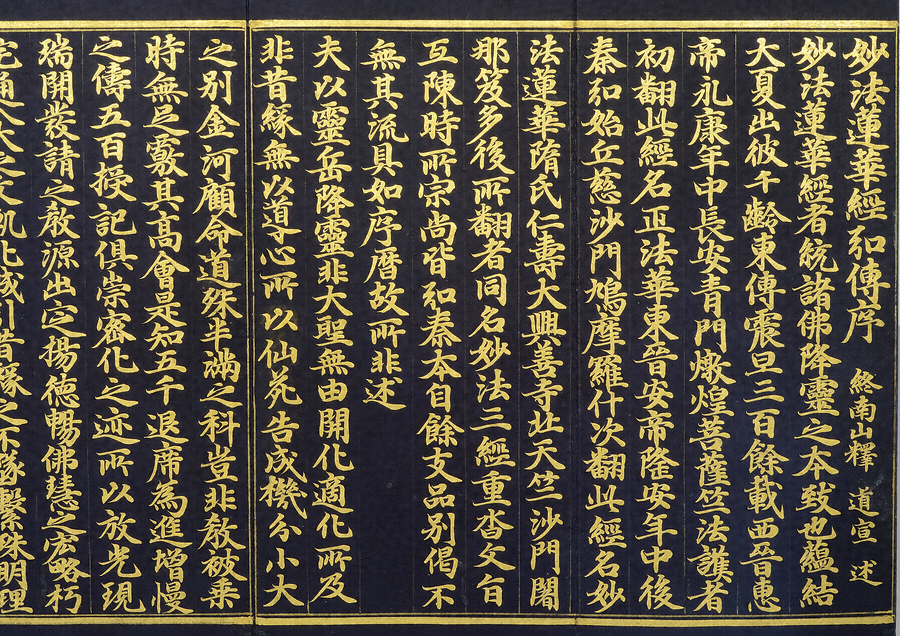 妙法蓮華經弘傳序 終南山釋 道宣 述
妙法蓮華經者統諸佛降靈之本致也蘊結
大夏出彼千齡東傳震旦三百餘載西晉惠
帝永康年中長安青門燉煌菩薩竺法護者
初翻此經名正法華東晉安帝隆安年中後
秦弘始丘慈沙門鳩摩羅什次翻此經名妙
法蓮華隋氏仁壽大興善寺北天竺沙門闍
那笈多後所翻者同名妙法三經重沓文旨
互陳時所宗尚皆弘秦本自餘支品別偈不
無其流具如序曆故所非述
夫以靈岳降靈非大聖無由開化適化所及
非昔緣無以導心所以仙苑告成機分小大
之別金河顧命道殊半滿之科豈非教被乘
時無足覈其高會是知五千退席為進增慢
之儔五百授記俱崇密化之迹所以放光現
瑞開發請之教源出定揚德暢佛慧之宏略朽
宅通入大之文軌化城引昔緣之不墜繫珠明理